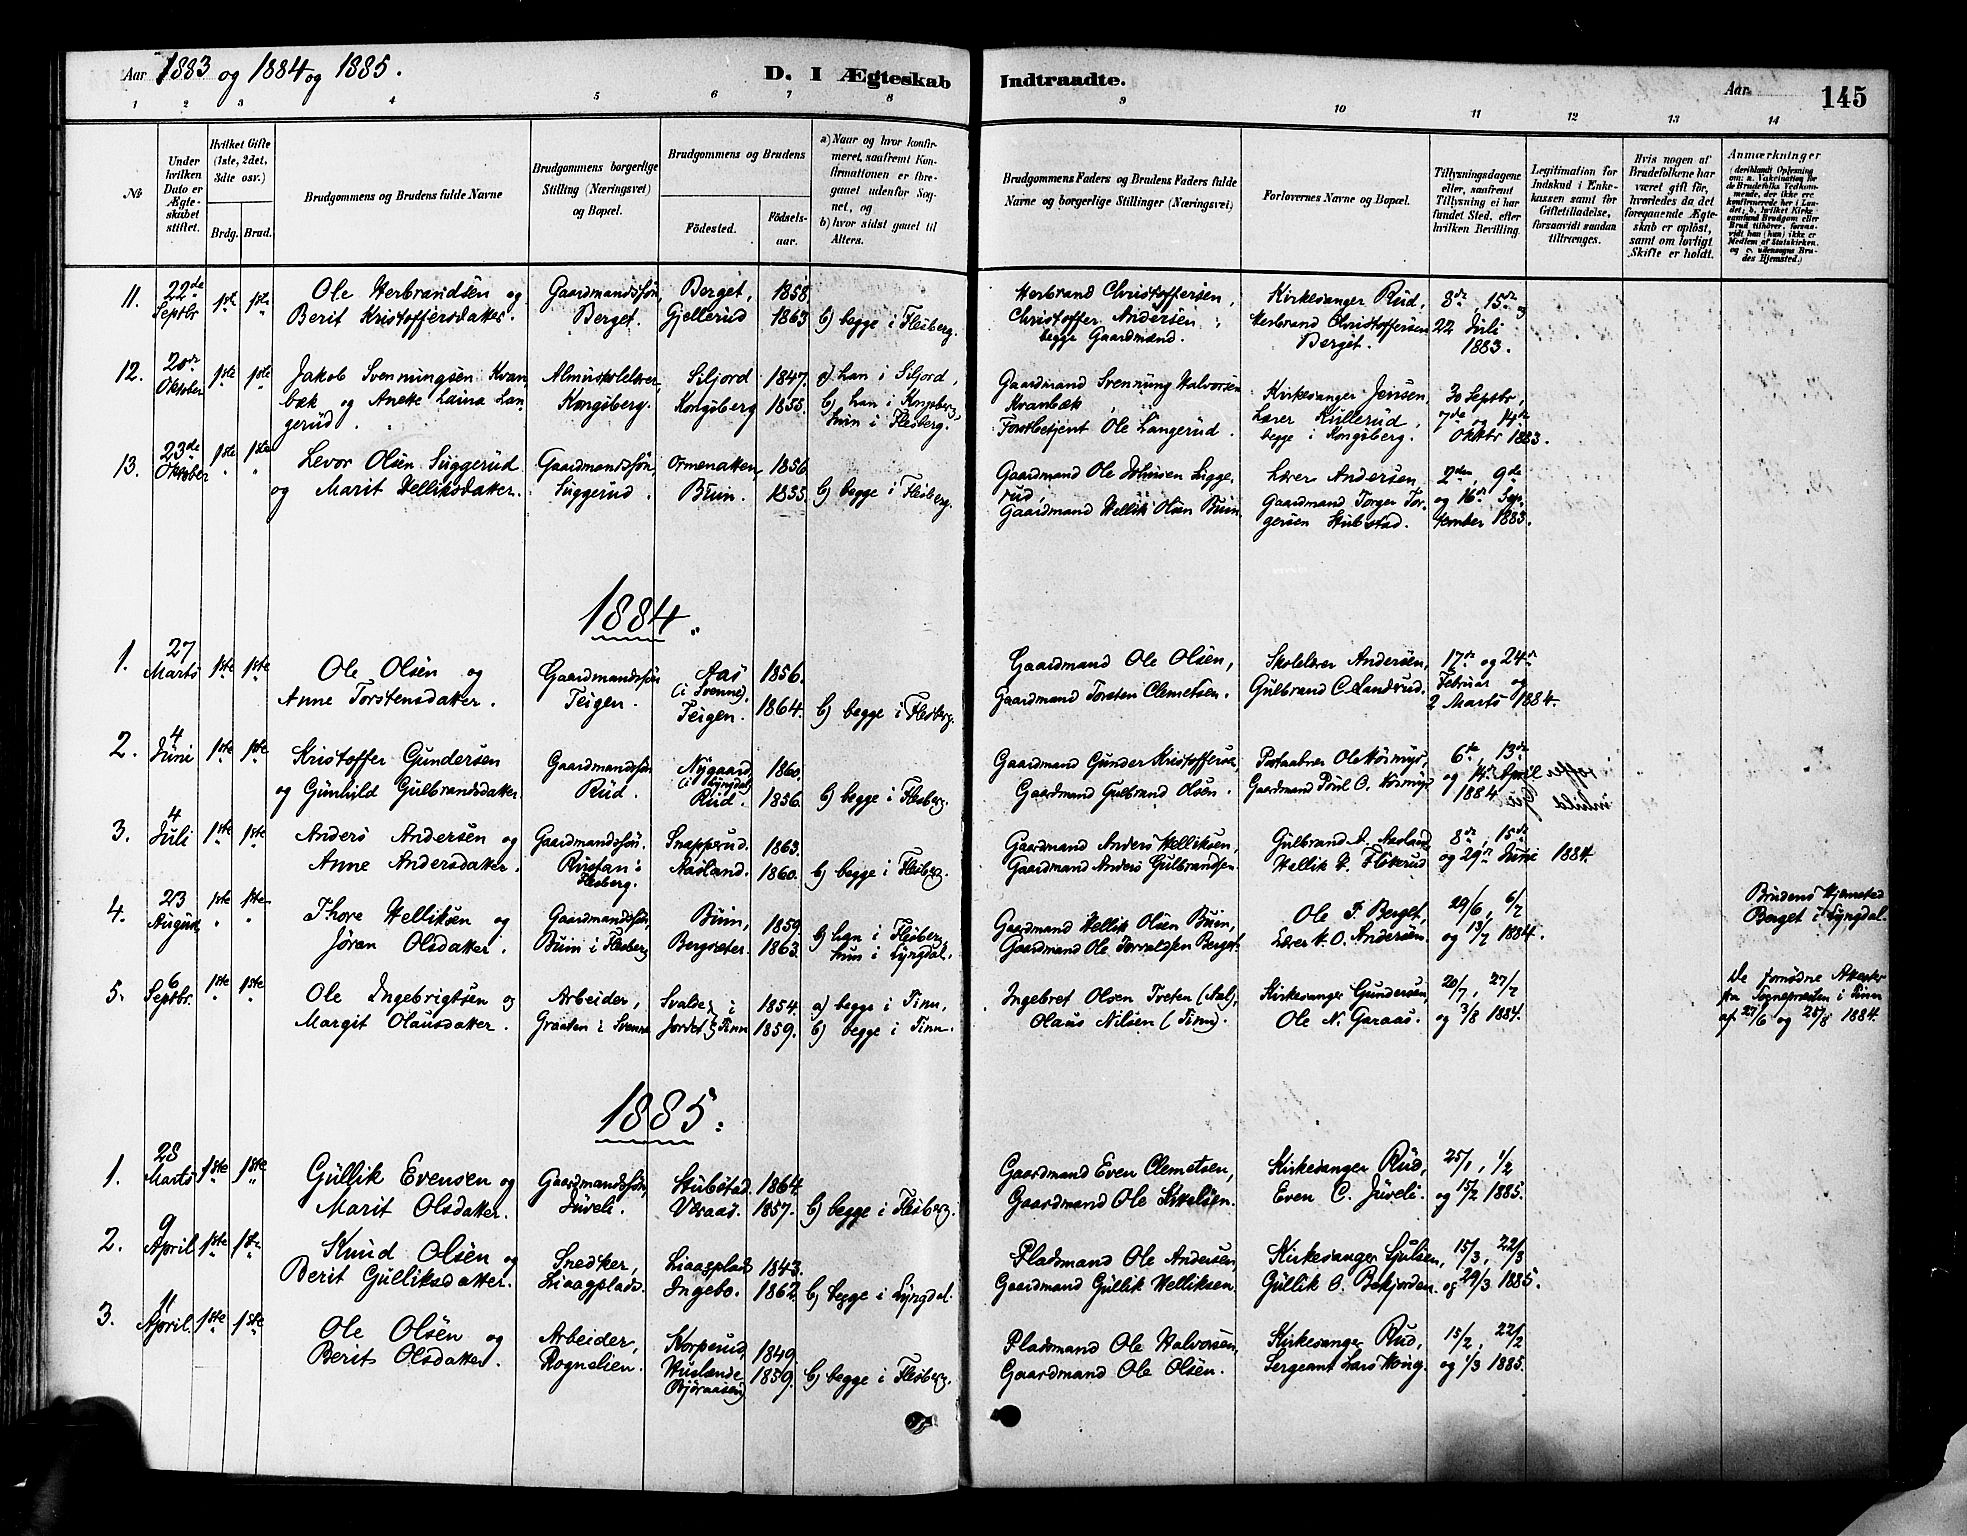 Aar 1883 og 1884 og 1885.
D. I Ægteskab Indtraadte.
Aar 145
1 2 3 4 5 6 7 8 9 10 11 12 13 14
№
Under hvilken Dato er Ægteskabet stiftet.
Hvilket Gifte (1ste, 2det, 3die osv.)
Brdg. Brud.
Brudgommens og Brudens fulde Navne
Brudgommens borgerlige Stilling (Næringsvei) og Bopæl.
Brudgommens og Brudens
Födested.
Födselsaar.
a) Naar og hvor konfirmeret, saafremt Konfirmationen er foregaaet udenfor Sognet, og
b) hvor sidst gaaet til Alters.
Brudgommens Faders og Brudens Faders fulde Navne og borgerlige Stillinger (Næringsvei)
Forlovernes Navne og Bopæl.
Tillysningsdagene eller, saafremt Tillysning ei har fundet Sted, efter hvilken Bevilling.
Legitimation for Indskud i Enkekassen samt for Giftetilladelse, forsaavidt saadan tiltrænges.
Hvis nogen af Brudefolkene har været gift för, hvorledes da det foregaaende Ægteskab er oplöst, samt om lovligt Skifte er holdt.
Anmærkninger
11. 22de Septbr 1ste 1ste Ole Herbrandsen og Gaardmandssön, Berget, 1858.
Berit Kristoffersdatter. Berget. Gjellerud 1863 b) begge i Flesberg.
Herbrand Christoffersen, Kirkesanger Rud, 8de 15de og
Christoffer Andersen, Herbrand Christoffersen 22 Juli
begge Gaardmænd. Berget. 1883.
12. 20de Oktober 1ste 1ste Jakob Svenningsen Kvan Almueskolelærer Siljord 1847. a) han i Siljord,
bæk og Anette Laina Lan Kongsberg. Kongsberg 1855. b) han i Kongsberg,
gerud. hun i Flesberg.
Gaardmand Svenning Halvorsen Kirkesanger Jensen, 30 Septbr,
Kvanbæk, Lærer Kullerud, 7de og 14de
Forstbetjent Ole Langerud. begge i Kongsberg. Oktbr 1883.
13. 23de Oktober 1ste 1ste Levor Olsen Suggerud Gaardmandssön, Ormenatten, 1856
og Marit Helliksdatter. Suggerud. Buin. 1855. b) begge i Flesberg.
Gaardmand Ole Johnsen Sugge Lærer Andersen 2den, 9de
rud, Gaardmand Torger Tor- og 16de Sep-
Gaardmand Hellik Olsen Buin gersen Stubstad. tember 1883.
1884.
1. 27 Marts 1ste 1ste Ole Olsen og Gaardmandssön Aas (i Svenne), 1856.
Anne Torstensdatter. Teigen. Teigen. 1864. b) begge i Flesberg.
Gaardmand Ole Olsen, Skolelærer Andersen, 17de og 24de
Gaardmand Torsten Clemetsen. Gulbrand C. Landrud. Februar og
2 Marts 1884.
2. 4 Juni 1ste 1ste Kristoffer Gundersen Gaardmandssön Nygaard (i Lyngdal) 1860.
og Gunhild Gulbrandsdatter Rud. Rud. 1856. b) begge i Flesberg.
Gaardmand Gunder Kristoffersen, Postaabner Ole 6te, 13de
Gaardmand Gulbrand Olsen. Gaardmand Poul O. og 14de April
1884
3. 4 Juli 1ste 1ste Anders Andersen og Gaardmandssön. Snapperud. 1863.
Anne Andersdatter. Rustan i Flesberg. Aasland. 1860. b) begge i Flesberg.
Gaardmand Anders Helliksen, Gulbrand A. Aasland 8de, 15de
Gaardmand Anders Gulbrandsen. Hellik H. Flikerud og 29de Juni 1884.
4. 23 August 1ste 1ste Thore Helliksen og Gaardmandssön, Buin, 1859.
Jøran Olsdatter. Buin i Flesberg Bergsæter. 1863. b) han i Flesberg
hun i Lyngdal.
Gaardmand Hellik Olsen Buin, Ole T. Berget, 29/6, 6/7
Gaardmand Ole Torvaldsen Berget. Lærer H. O. Andersen. og 13/7 1884.
Brudens Hjemsted
Berget i Lyngdal.
5. 6 Septbr. 1ste 1ste Ole Ingebrigtsen og Arbeider, 1854. a) begge i Tinn.
Margit Olausdatter. Graaten i Svenne Jordet i Tinn 1859. b) begge i Tinn.
Ingebret Olsen Tveten (Aal), Kirkesanger Gundersen, 20/7, 27/7
Olaus Nilsen (Tinn). Ole N. Garaas. og 3/8 1884.
De fornødne Attester
fra Sognepræsten i Tinn
af 27/6 og 25/8 1884.
1885.
1. 28 Marts 1ste 1ste Gullik Evensen og Gaardmandssön, Stubstad. 1864.
Marit Olsdatter. Juveli. Væraas. 1857. b) begge i Flesberg.
Gaardmand Even Clemetsen, Kirkesanger Rud, 25/1, 1/2
Gaardmand Ole Even C. Juveli. og 15/2 1885.
2. 9 April 1ste 1ste Knud Olsen og Snedker, Liaagplads 1843.
Berit Gulliksdatter. Liaagplads. Ingebo. 1862. b) begge i Lyngdal.
Pladsmand Ole Andersen Kirkesanger Sjulsen, 15/3, 22/3
Gaardmand Gullik Helliksen. Gullik O. Bekjorden. og 29/3 1885.
3. 11 April. 1ste 1ste Ole Olsen og Arbeider, Korperud, 1849.
Berit Olsdatter. Rognelien. 1859. b) begge i Flesberg.
Pladsmand Ole Halvorsen, Kirkesanger Rud, 15/2, 22/2
Gaardmand Ole Olsen. Sergeant Lars Hvong. og 1/3 1885.